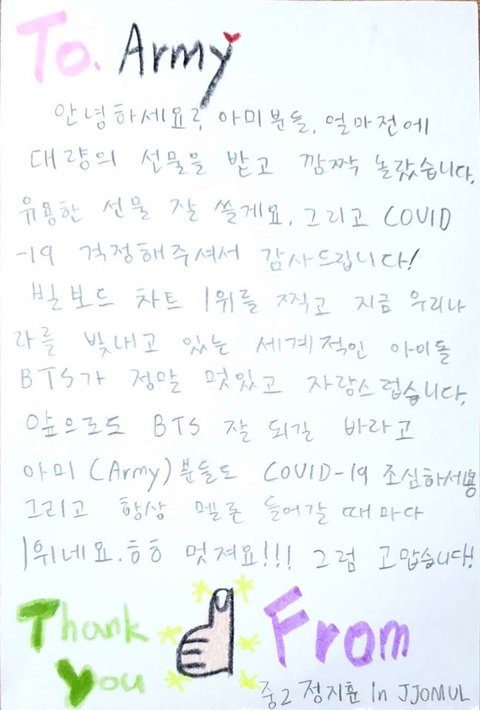 To. Army
안녕하세요?, 아미분들, 얼마전에
대량의 선물을 받고 깜짝 놀랐습니다.
유용한 선물 잘 쓸게요. 그리고 COVID
-19 걱정해주셔서 감사드립니다!
빌보드 차트 1위를 찍고 지금 우리나
라를 빛내고 있는 세계적인 아이돌
BTS가 정말 멋있고 자랑스럽습니다.
앞으로도 BTS 잘 되길 바라고
아미(Army)분들도 COVID-19 조심하세용
그리고 항상 멜론 들어갈 때마다
1위네요.ㅎㅎ 멋져요!!! 그럼 고맙습니다!
Thank You
From
중2 정지훈 in JJOMUL